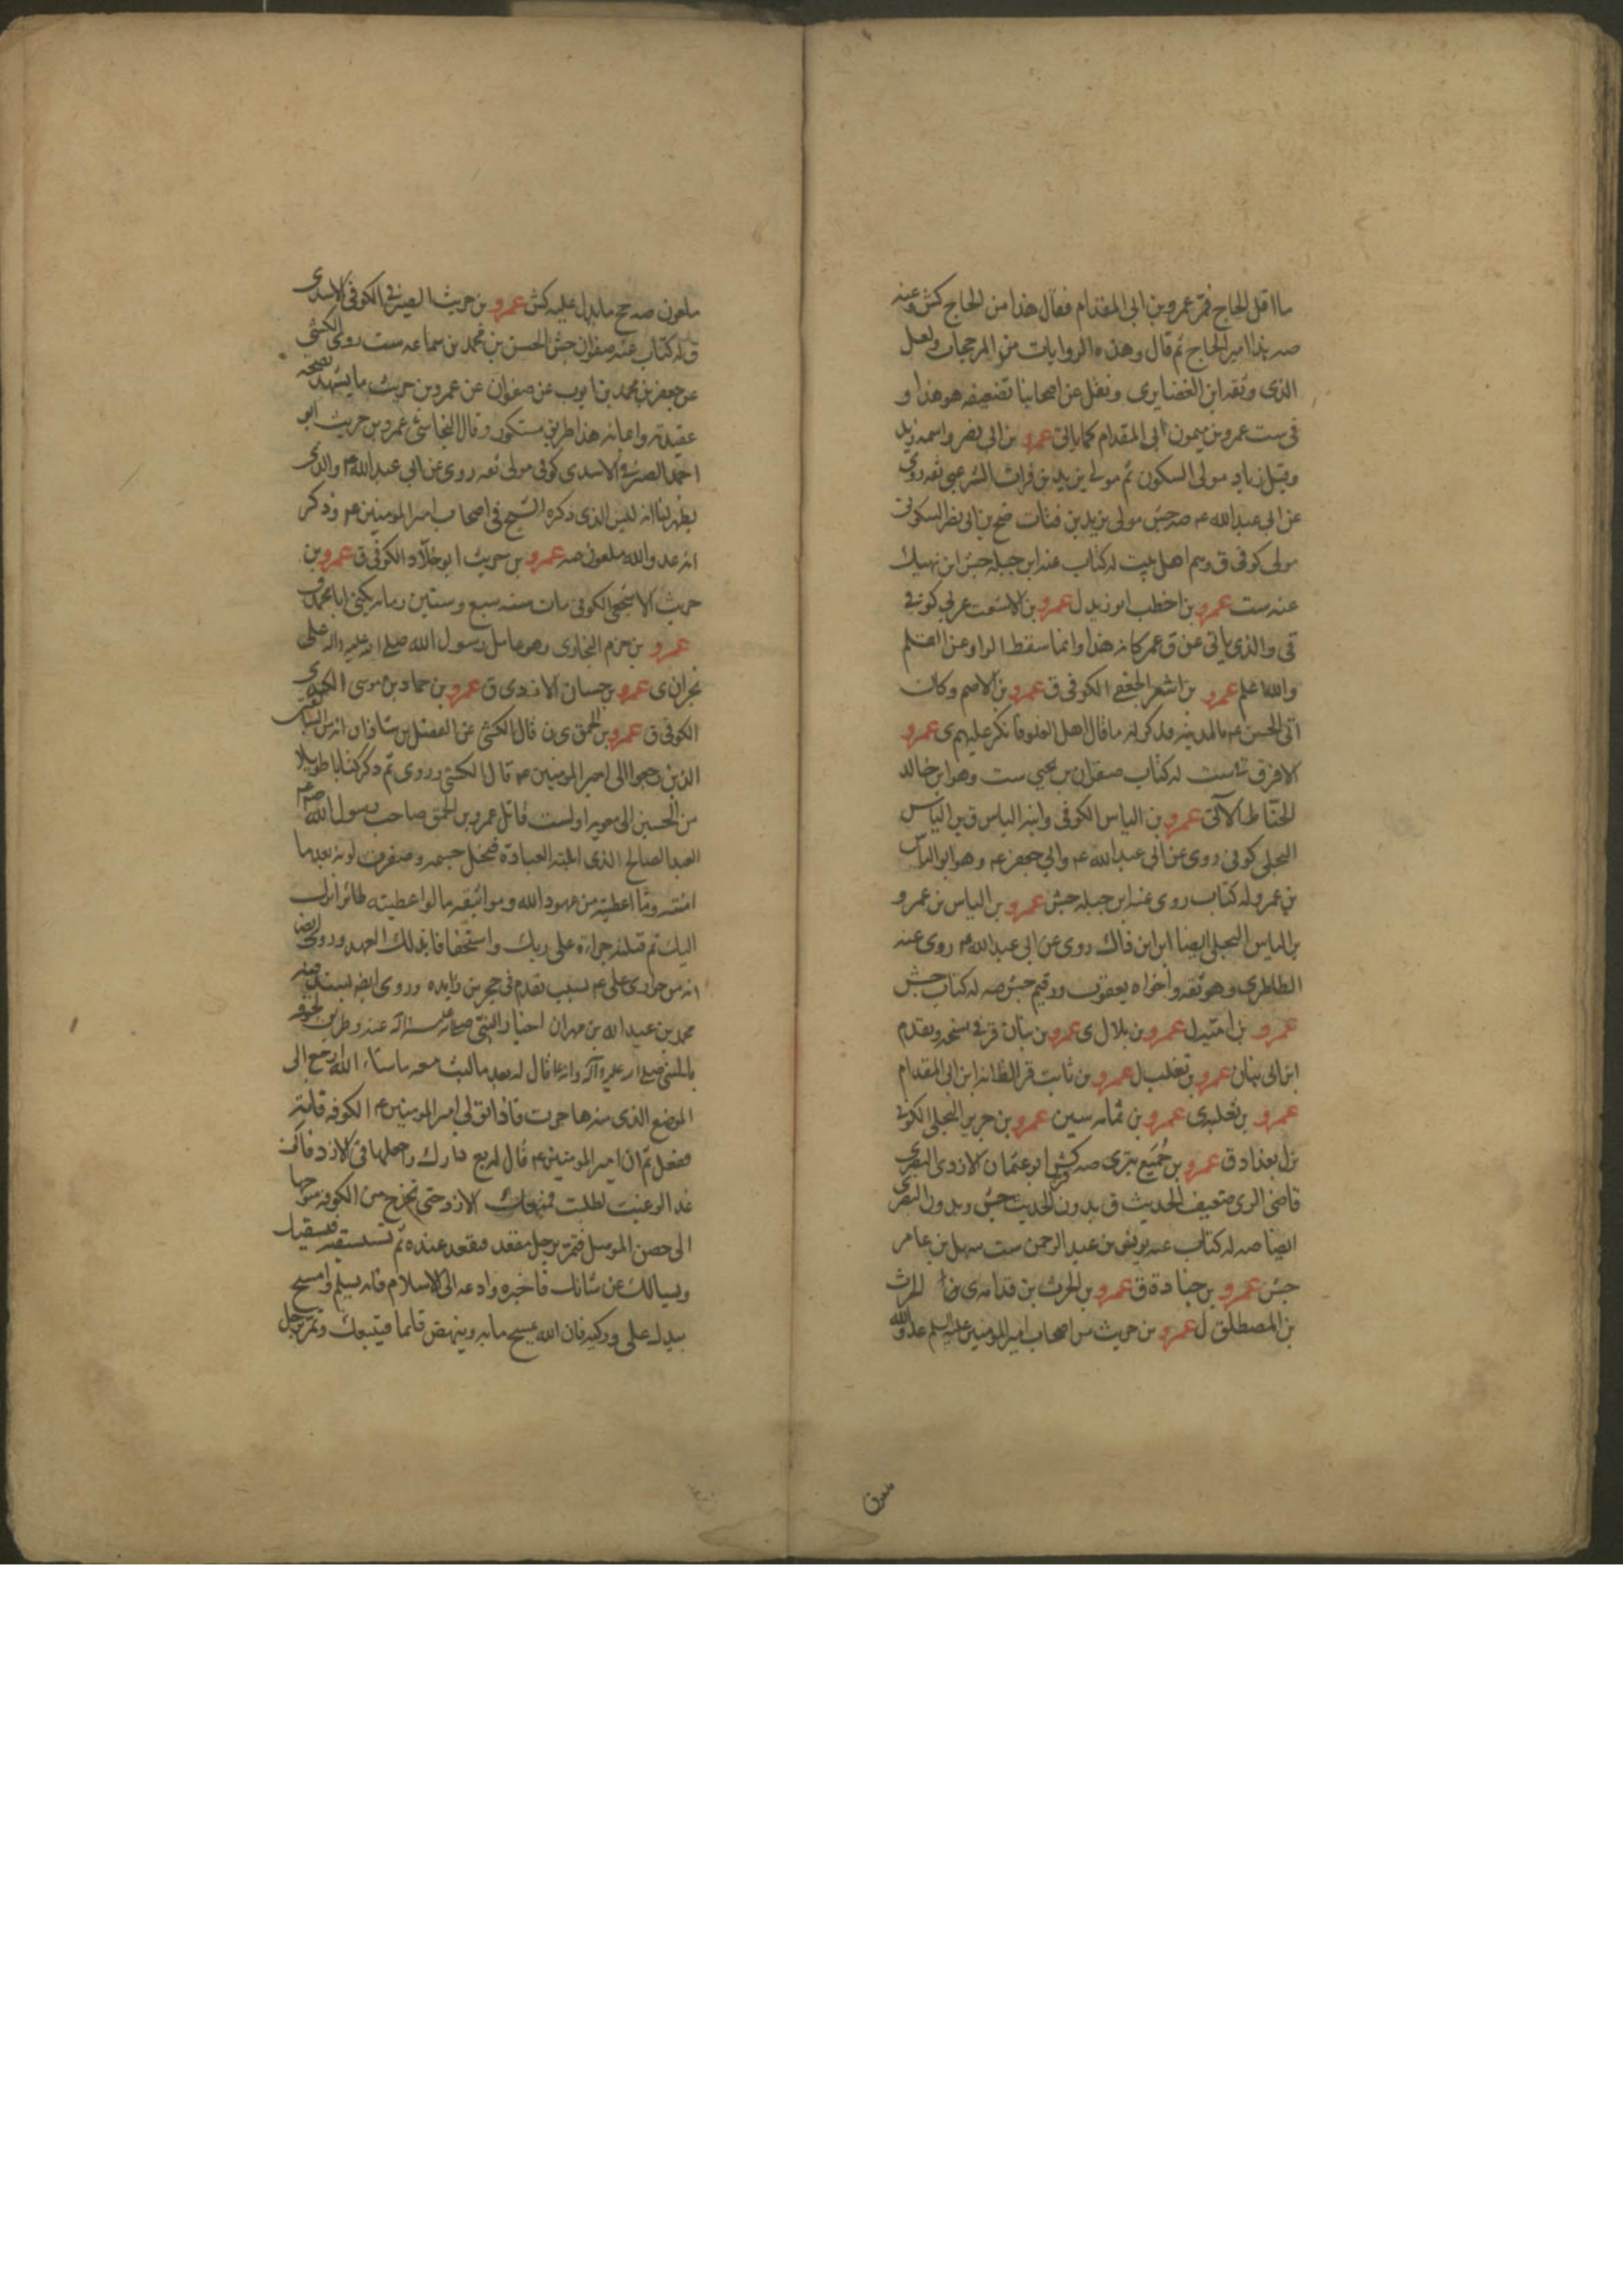 ما اقل الحاج فمر عمرو بن ابي المقدام فقال هذا من الحاج كش وعنه
صه هذا امير الحاج ثم قال وهذه الروايات من المرجحات ولعل
الذي وثقه ابن الغضايرى ونقل عن اصحابنا تضعيفه هو هذا و
في ست عمرو بن ميمون ابى المقدام كما ياتي عمرو بن ابى نصر واسمه زيد
وقيل زياد مولى السكون ثم مولى يزيد بن فرات الشرعبى ثقه روى
عن ابى عبد الله ع صه جش مولى يزيد بن فرات بن ابى نصر السكونى
مولى كوفى ق وهم اهل بيت له كتاب عنه ابن جبله جش ابن نهيك
عنه ست عمرو بن اخطب ابو زيد ل عمرو بن الاشعث عربي كوفي
قي والذى ياتي عن ق عمر كانه هذا وانما سقط الواو عن القلم
والله اعلم عمرو بن اشعر الجعفي الكوفي ق عمرو بن الاصم وكان
اتى الحسن ع بالمدينه فذكر له ما قال اهل الغلو فانكر عليهم ى عمرو
الافرق ست له كتاب صفوان بن يحيى ست وهو ابن خالد
الحناط الآتى عمرو بن الياس الكوفى وابنه الياس ق بن الياس
البجلى كوفى روى عن ابى عبد الله ع وابي جعفر ع وهو ابو الياس
بن عمرو له كتاب روى عنه ابن جبله جش عمرو بن الياس بن عمرو
بن الياس البجلى ايضا ابن ابن ذاك روى عن ابى عبد الله ع روى عنه
الطاطرى وهو ثقه واخواه يعقوب ورقيم جش صه له كتاب جش
عمرو بن اميه ل عمرو بن بلال ى عمرو بن بنان قر في نسخه وتقدم
ابن ابى بنان عمرو بن تغلب ل عمرو بن ثابت قر الظ انه ابن ابى المقدام
عمرو بن ثعلبه ى عمرو بن ثمامه سين عمرو بن جرير البجلى الكوفي
نزل بغداد ق عمرو بن جميع بترى صه كش قر ابو عثمان الازدى البصرى
قاضى الرى ضعيف الحديث ق بدون الحديث جش وبدون البصرى
ايضا صه له كتاب عنه يونس بن عبد الرحمن ست سهل بن عامر
جش عمرو بن جنادة ق عمرو بن الحرث بن قدامه ى الحرث
بن المصطلق ل عمرو بن حريث من اصحاب امير المؤمنين عليه السلم عدو الله
ملعون
ملعون صه صح ما يدل عليه كش عمرو بن حريث الصيرفى الكوفى الاسدى
ق له كتاب عنه صفوان جش الحسن بن محمد بن سماعه ست روى الكشى
عن جعفر بن محمد بن ايوب عن صفوان عن عمرو بن حريث ما يشهد بصحة
عقيدته وايمانه هذا طريق مستكور وقال النجاشى عمرو بن حريث ابو
احمد الصيرفى الاسدى كوفى مولى ثقه روى عن ابي عبد الله ع والذى
يظهر لنا انه ليس الذى ذكره الشيخ فى اصحاب امير المومنين ع وذكر
انه عدو الله ملعون صه عمرو بن حريث ابو خلاد الكوفى ق عمرو بن
حريث الاشجعى الكوفى مات سنه سبع وستين ومائه يكنى ابا محمد ق
عمرو بن حزم النجارى وهو عامل رسول الله صلى الله عليه واله على
نجران ى عمرو بن حسان الازدى ق عمرو بن حماد بن موسى الكندى
الكوفى ق عمرو بن الحمق ى ن قال الكشى عن الفضل بن شاذان انه من السابقين
الذين رجعوا الى امير المومنين ع قال الكشى وروى ثم ذكر كتابا طويلا
من الحسين الى معويه اولست قاتل عمرو بن الحمق صاحب رسول الله ص
العبد الصالح الذى ابلته العبادة فنحل جسمه وصفرت لونه بعد ما
امنته وما اعطيته من عهود الله ومواثيقه ما لو اعطيته طائرا نزل
اليك ثم قتلته جراءة على ربك واستخفافا بذلك العهد وروى ايضا
انه من حوارى على ع بسبب تقدم فى حجر بن زايده وروى ايضا بسند فيه
محمد بن عبد الله بن مهران اخبار النبى صلى الله عليه واله عنه وطريق لحوقه
بالنبى صلى الله عليه واله وانه ع قال له بعد ما لبث معه ما شاء الله ارجع الى
الموضع الذى منه هاجرت فاذا تولى امير المومنين ع الكوفه فاته
ففعل ثم ان امير المومنين ع قال له بع دارك واجعلها فى الازد فانى
غدا لو غبت لطلبت فمنعك الازد حتى تخرج من الكوفه متوجها
الى حصن الموصل فتمر برجل مقعد فتقعد عنده ثم تستسقيه فيسقيك
ويسالك عن شانك فاخبره وادعه الى الاسلام فانه يسلم وامسح
بيدك على وركيه فان الله يمسح ما به وينهض قائما فيتبعك وتمر برجل